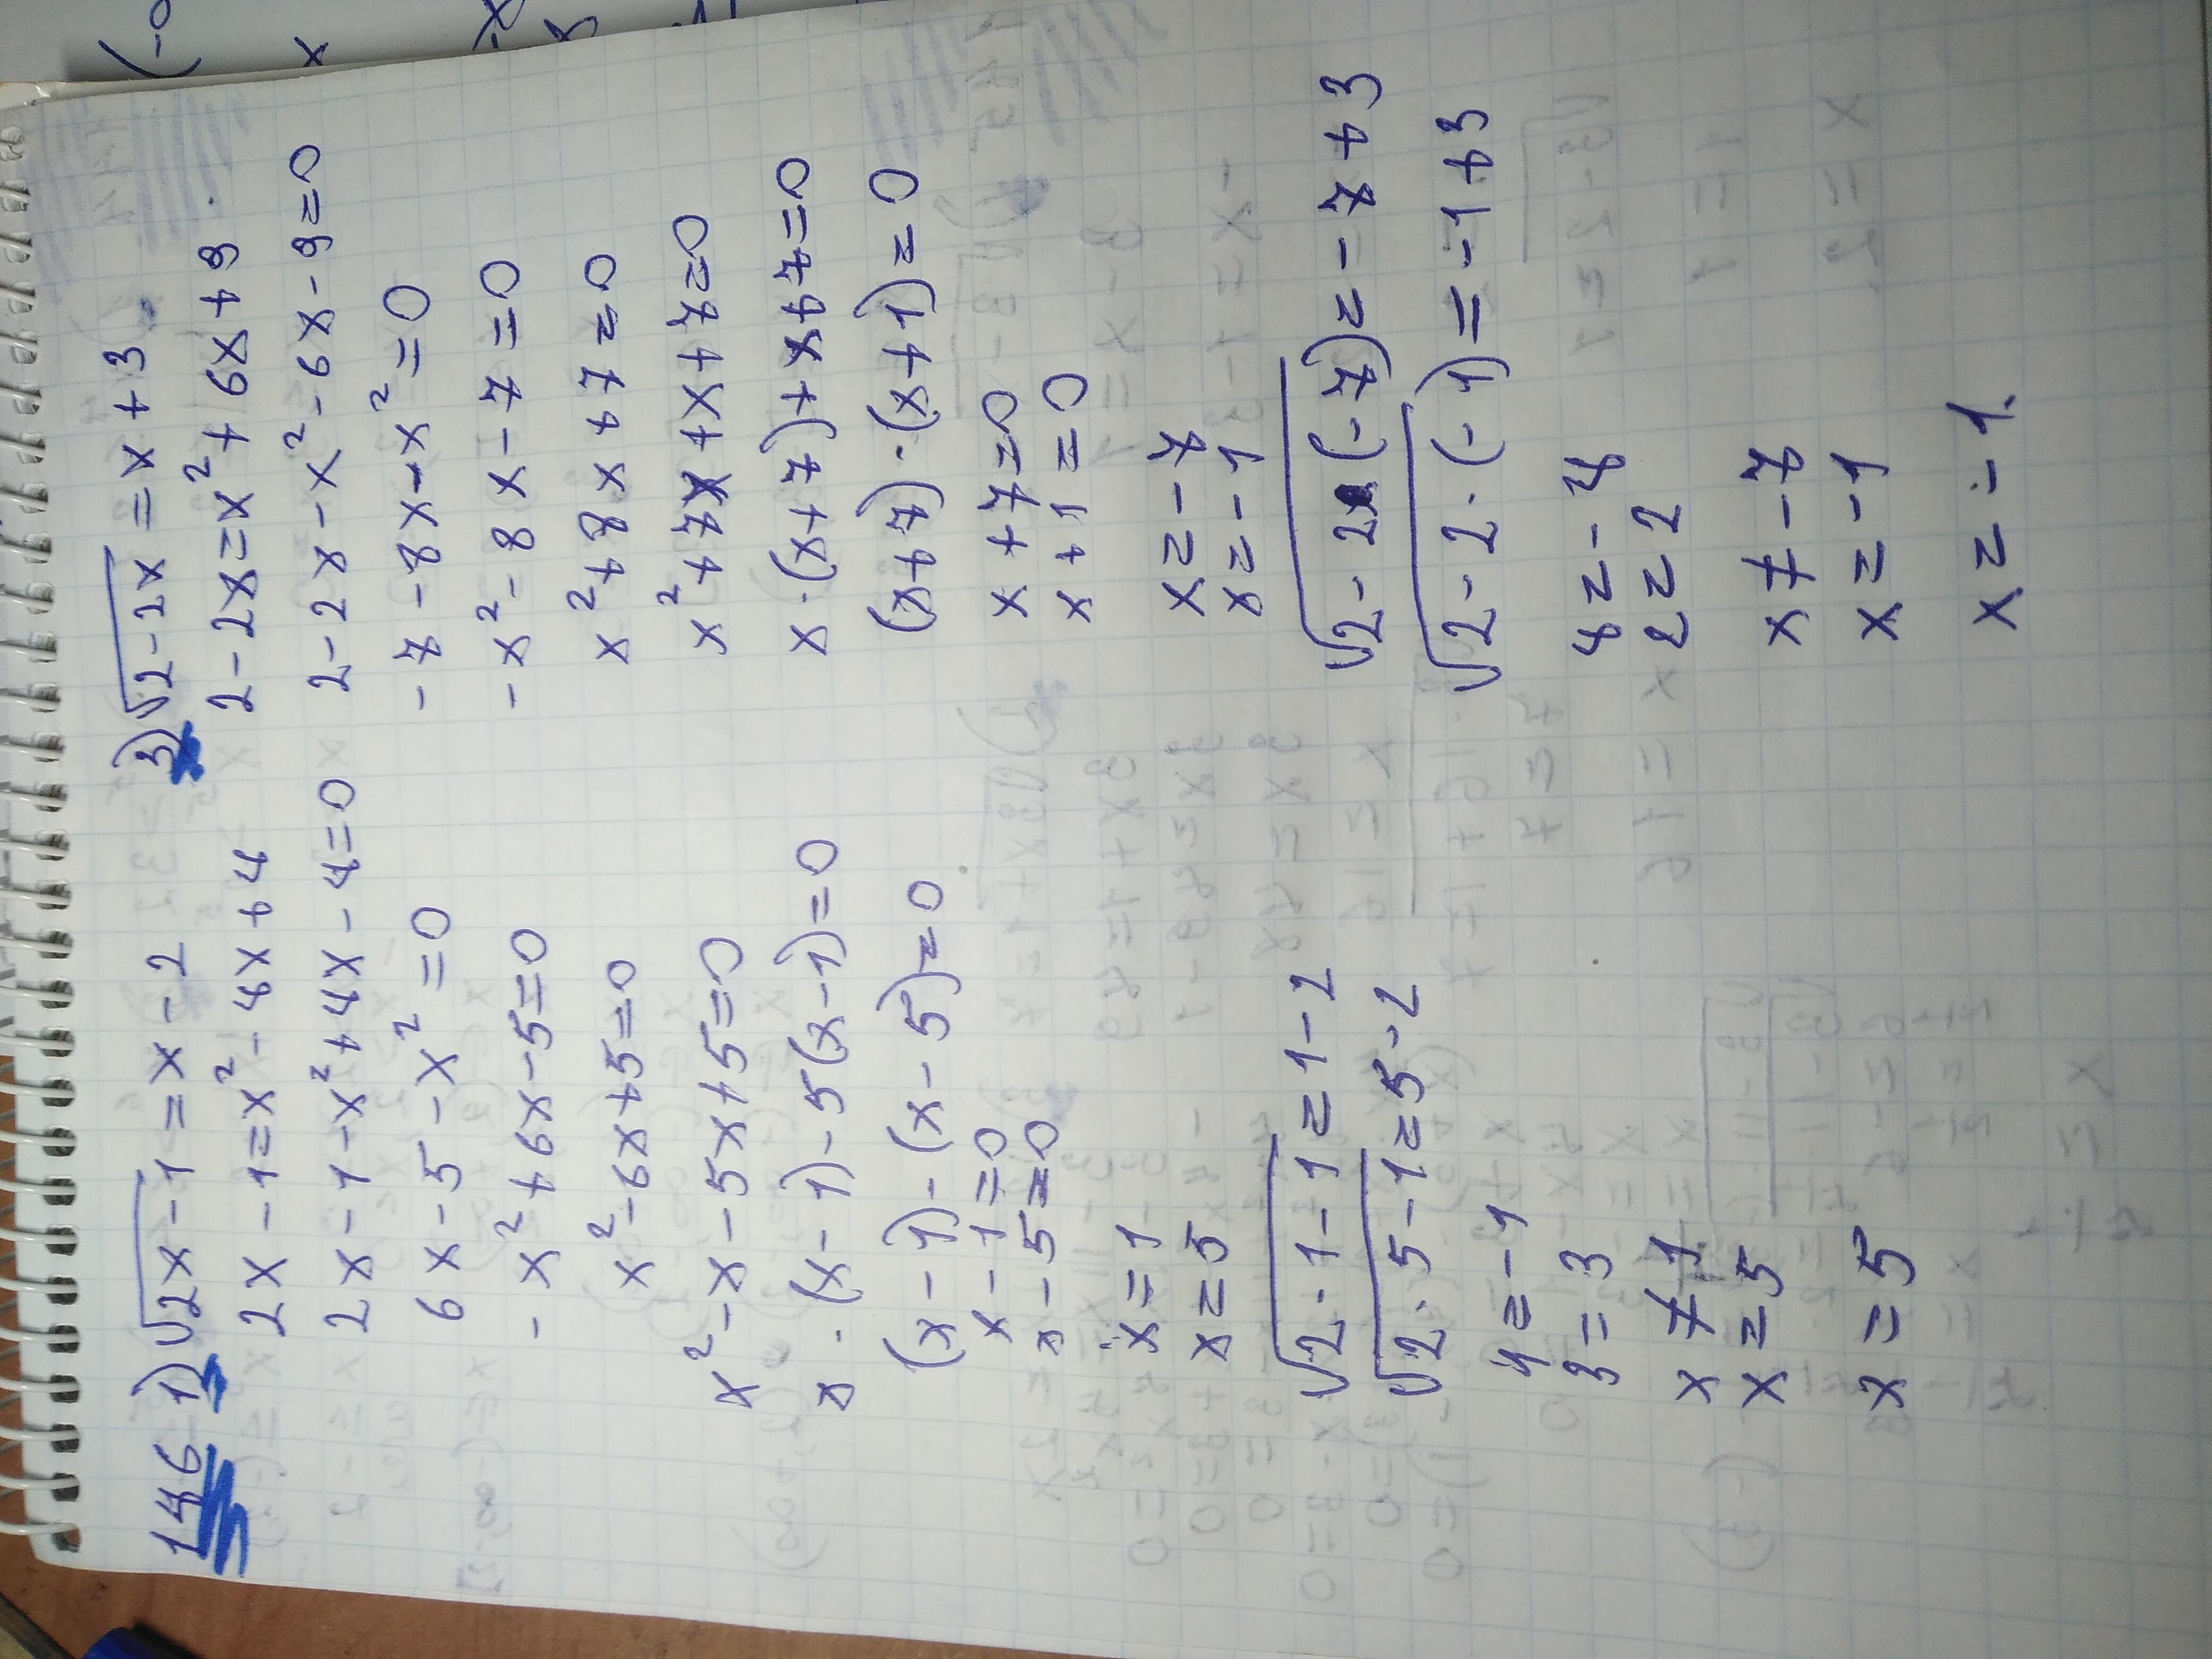 146 1) √2x-1 = x-2
2x-1=x²-4x+4
2x-1-x²+4x-4=0
6x-5-x²=0
-x²+6x-5=0
x²-6x+5=0
x²-x-5x+5=0
x·(x-1)-5(x-1)=0
(x-1)-(x-5)=0
x-1=0
x-5=0
x=1
x=5
√2·1-1=1-2
√2·5-1=5-2
1=-1
3=3
x≠1
x=5
x=5
3) √2-2x=x+3
2-2x=x²+6x+9
2-2x-x²-6x-9=0
-7-8x-x²=0
-x²-8x-7=0
x²+8x+7=0
x²+7x+x+7=0
x·(x+7)+x+7=0
(x+7)·(x+1)=0
x+7=0
x+1=0
x=-7
x=-1
√2-2(-7)=-7+3
√2-2·(-1)=-1+3
4=-4
2=2
x≠-7
x=-1
x=-1